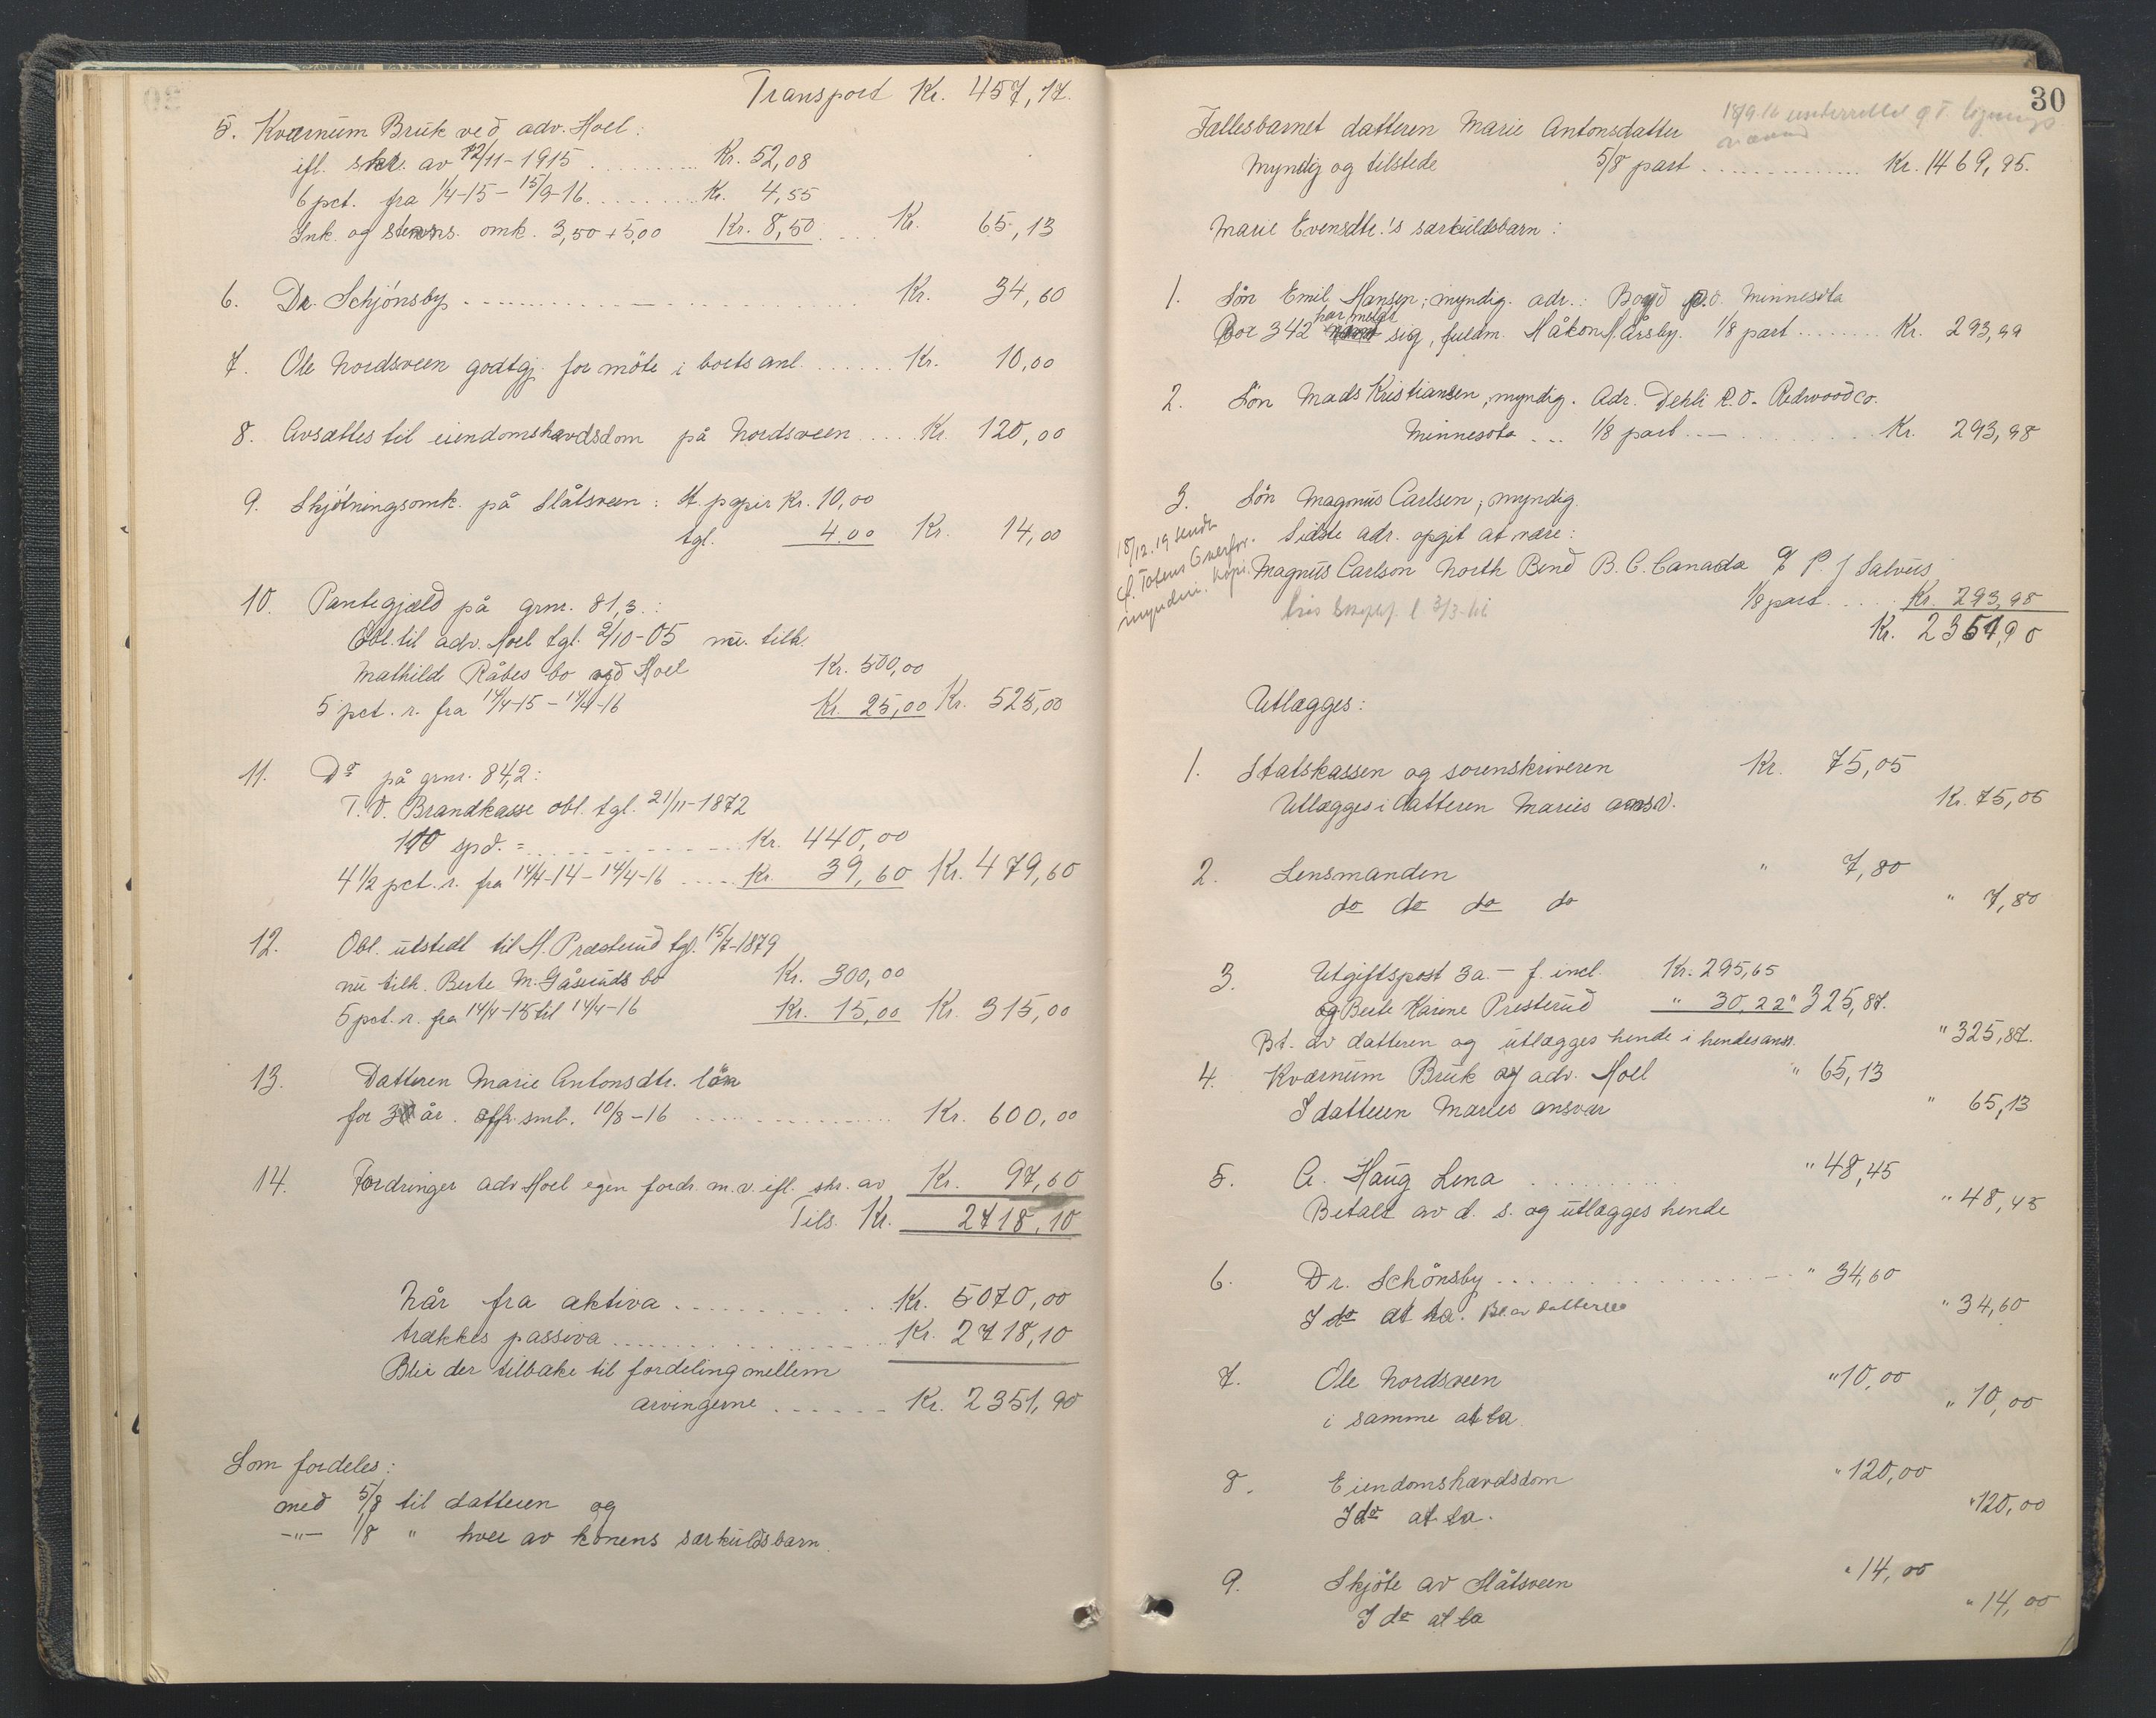 Transport Kr. 457,17.
5. Kværnum Bruk ved adv. Hoel:
ifl. skr. av 12/11-1915 ......... Kr. 52,08
6 pct. fra 1/4-15 - 15/9-16 ........ Kr. 4,55
Ink. og stevns. omk. 3,50 + 5,00 Kr. 8,50 .... Kr. 65,13
6. Dr. Schjönsby ............ Kr. 34,60
7. Ole Nordsveen godtgj. for möte i boets anl. ...... Kr. 10,00
8. Avsættes til eiendomshævdsdom på Nordsveen .... Kr. 120,00
9. Skjötningsomk. på Slåtsveen: St. papir Kr. 10,00
tgl. 4.00 Kr. 14,00
10. Pantegjæld på grnr. 81,3.:
Obl. til adv. Hoel tgl. 2/10-05 nu tilh.
Mathilde Råbes bo ved Hoel Kr. 500,00
5 pct. r. fra 14/4-15 - 14/4-16 Kr. 25,00 Kr. 525,00
11. Do på grnr. 84,2:
T. O. Brandkasse obl. tgl. 21/11-1872
110 spd. = ............ Kr. 440,00
4 1/2 pct. r. fra 14/4-14 - 14/4-16 ..... Kr. 39,60 Kr. 479,60
12. Obl. utstedt til H. Præsterud tgl. 15/7-1879
nu tilh. Berte M. Gåserūds bo Kr. 300,00
5 pct. r. fra 14/4-15 til 14/4-16 Kr. 15,00 Kr. 315,00
13. Datteren Marie Antonsdtr. lön
for 3 år. smb. 10/8-16 ............ Kr. 600,00
14. Fordringer adv Hoel egen fordr. m. v. ifl. skr. av Kr. 97,60
Tils. Kr. 2718,10
Når fra aktiva ............ Kr. 5070,00
trækkes passiva ............ Kr. 2718,10
Blir der tilbake til fordeling mellem
arvingerne ...... Kr. 2351,90
Som fordeles:
med 5/8 til datteren og
-"- 1/8 " hver av konens særkuldsbarn.
30
18/9-16 underrettet
Fællesbarnet datteren Marie Antonsdatter
Myndig og tilstede 5/8 part ............ Kr. 1469,95.
Marie Evensdtr.'s særkuldsbarn:
1. Sön Emil Hansen; myndig. adr.: Boyd p.o. Minnesota
har meldt
Box 342 sig, fuldm. Håkon Hårsby. 1/8 part ....... Kr. 293,99
2. Sön Mads Kristiansen, myndig. Adr. Dehli P.O. Redwood co.
Minnesota ... 1/8 part ......... Kr. 293,98
3. Sön Magnus Carlsen; myndig.
Sidste adr. opgit at være:
18/12.19 sendt
Totens Overfor.
mynderi. kopi.
Magnus Carlson North Bend B. C. Canada % P. J Salvus
1/8 part ..... Kr. 293,98
Kr. 2351,90
Utlægges:
1. Statskassen og sorenskriveren Kr. 75,05
Utlægges i datteren Maries ansv. Kr. 75,05
2. Lensmanden " 7,80
do do do do " 7,80
3. Utgiftspost 3a. - f. incl. Kr. 295,65
og Berte Karine Presterud " 30,22 " 325,87.
Bt. av datteren og utlægges hende i hendes ansv. " 325,87.
4. Kværnum Bruk og adv. Hoel " 65,13
I datteren Maries ansvar " 65,13
5. A. Haug Lena ......... " 48,45
Betalt av d. s. og utlægges hende " 48,45
6. Dr. Schönsby ............ " 34,60
I do at ta. Bt. av datteren " 34,60
7. Ole Nordsveen " 10,00
i samme at ta. " 10,00
8. Eiendomshævdsdom " 120,00
I do at ta. " 120,00
9. Skjöte av Slåtsveen " 14,00
I do at ta " 14,00